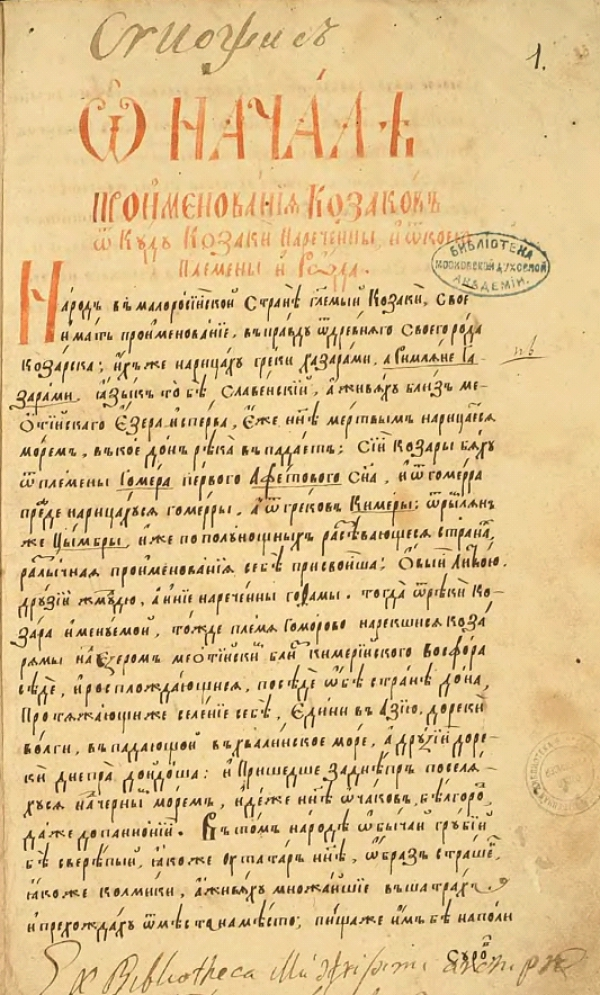 1.
Ѿ НАЧА́ЛѢ
ПРОИ́МЕНОВА́НІЯ КОЗАКѠ́ВЪ
ѿ Кꙋдꙋ Козаки́ Нарече́нны, и́ ѿ коегѡ
Пле́мены и́ Рѡ́да.
БИБЛІОТЕКА
МОСКОВСКОЙ ДУХОВНОЙ
АКАДЕМІИ.
На́родъ въ малоросі́йской Странѣ̀ гл҃емый Козаки̑, Свое
и́мать прои́менованїе, въ пра́вдꙋ ѿ дре́внѧго Своего̀ рода
козарска; и́хъ же нарица́хꙋ гре́ки хаза́рами, а Ри́млѧне га-
зара́ми. ꙗ҆зы́къ то̀ бѣ̀ Славе́нскїй, а жи́вѧхꙋ бли́зъ ме-
ѻ́ті́йскаго Є҆́зера и́сперва, Є҆́же нн҃ѣ ме́ртвымъ нарица́есѧ
мо́ремъ, въ кое до́нъ рѣка̀ въпада́етъ; Сі́и Козары бѧ́хꙋ
ѿ пле́мены Гоме́ра пе́рвого Афе́това Сн҃а, и́ ѿ гоме́рра
пре́жде нарица́хꙋсѧ гоме́рры, а ѿ гре́ковъ Ки́меры; ѿ ри́млѧн
же Цы́мбры, и́же по полꙋ́нощныхъ разсѣва́ющесѧ страна́х
разли́чнаѧ прои́менова́нїѧ себѣ̀ присво́иша; Ѻ́выи Ли́твою,
дрꙋзі́и жмꙋ́дю, а и҆нїе нарече́нны го́тѳамы. тогда̀ ѿ рѣки́ Ко-
за́ра и́менꙋ́емой, то́жде пле́мѧ Гомо́рово наре́кшисѧ коза́-
рѧмы на є҆́зеромъ меѻ́ті́йскимъ близ кимері́йского Восфо́ра
сѣ́де, и́ роспложда́ющисѧ, посѣ́де ѻ́бѣ странѣ̀ дона,
Протѧжа́ющи же селе́нїе себѣ̀, Є҆ди́ни въ А́зїю, до реки́
во́лги, въпада́ющой въ хвали́нское мо́ре, а дрꙋзі́и до ре-
ки́ днепра̀ дойдо́ша: и́ Прише́дше за днѣ́пръ поселѧ́-
хꙋсѧ над че́рним мо́ремъ, и́дѣ́же нн҃ѣ Ѻ҆ча́ковъ, бѣ́лгород,
да́же до панно́нїи. Въ то́мъ наро́дѣ ѻ҆бы́чаи грꙋбі́и
бѣ̀ сверѣ́пыи, ꙗ҆́коже ꙋ тата́ръ нн҃ѣ, ѻ҆́бразъ стра́шен,
ꙗ҆́коже колми́ки, а жи́вѧхꙋ множа́йшїе въ шатра́хъ
и́ прехожда́хꙋ ѿ мѣ́ста на мѣ́сто; пи́ща же и́мъ бѣ̀ наполи
Сꙋро
Ex Bibliotheca